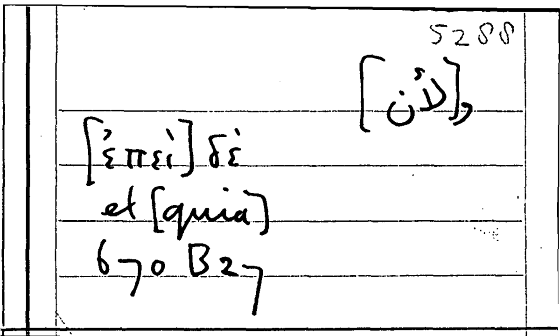 5288
و[لأن]
[ἐπεὶ] δὲ
et [quia]
670 B27